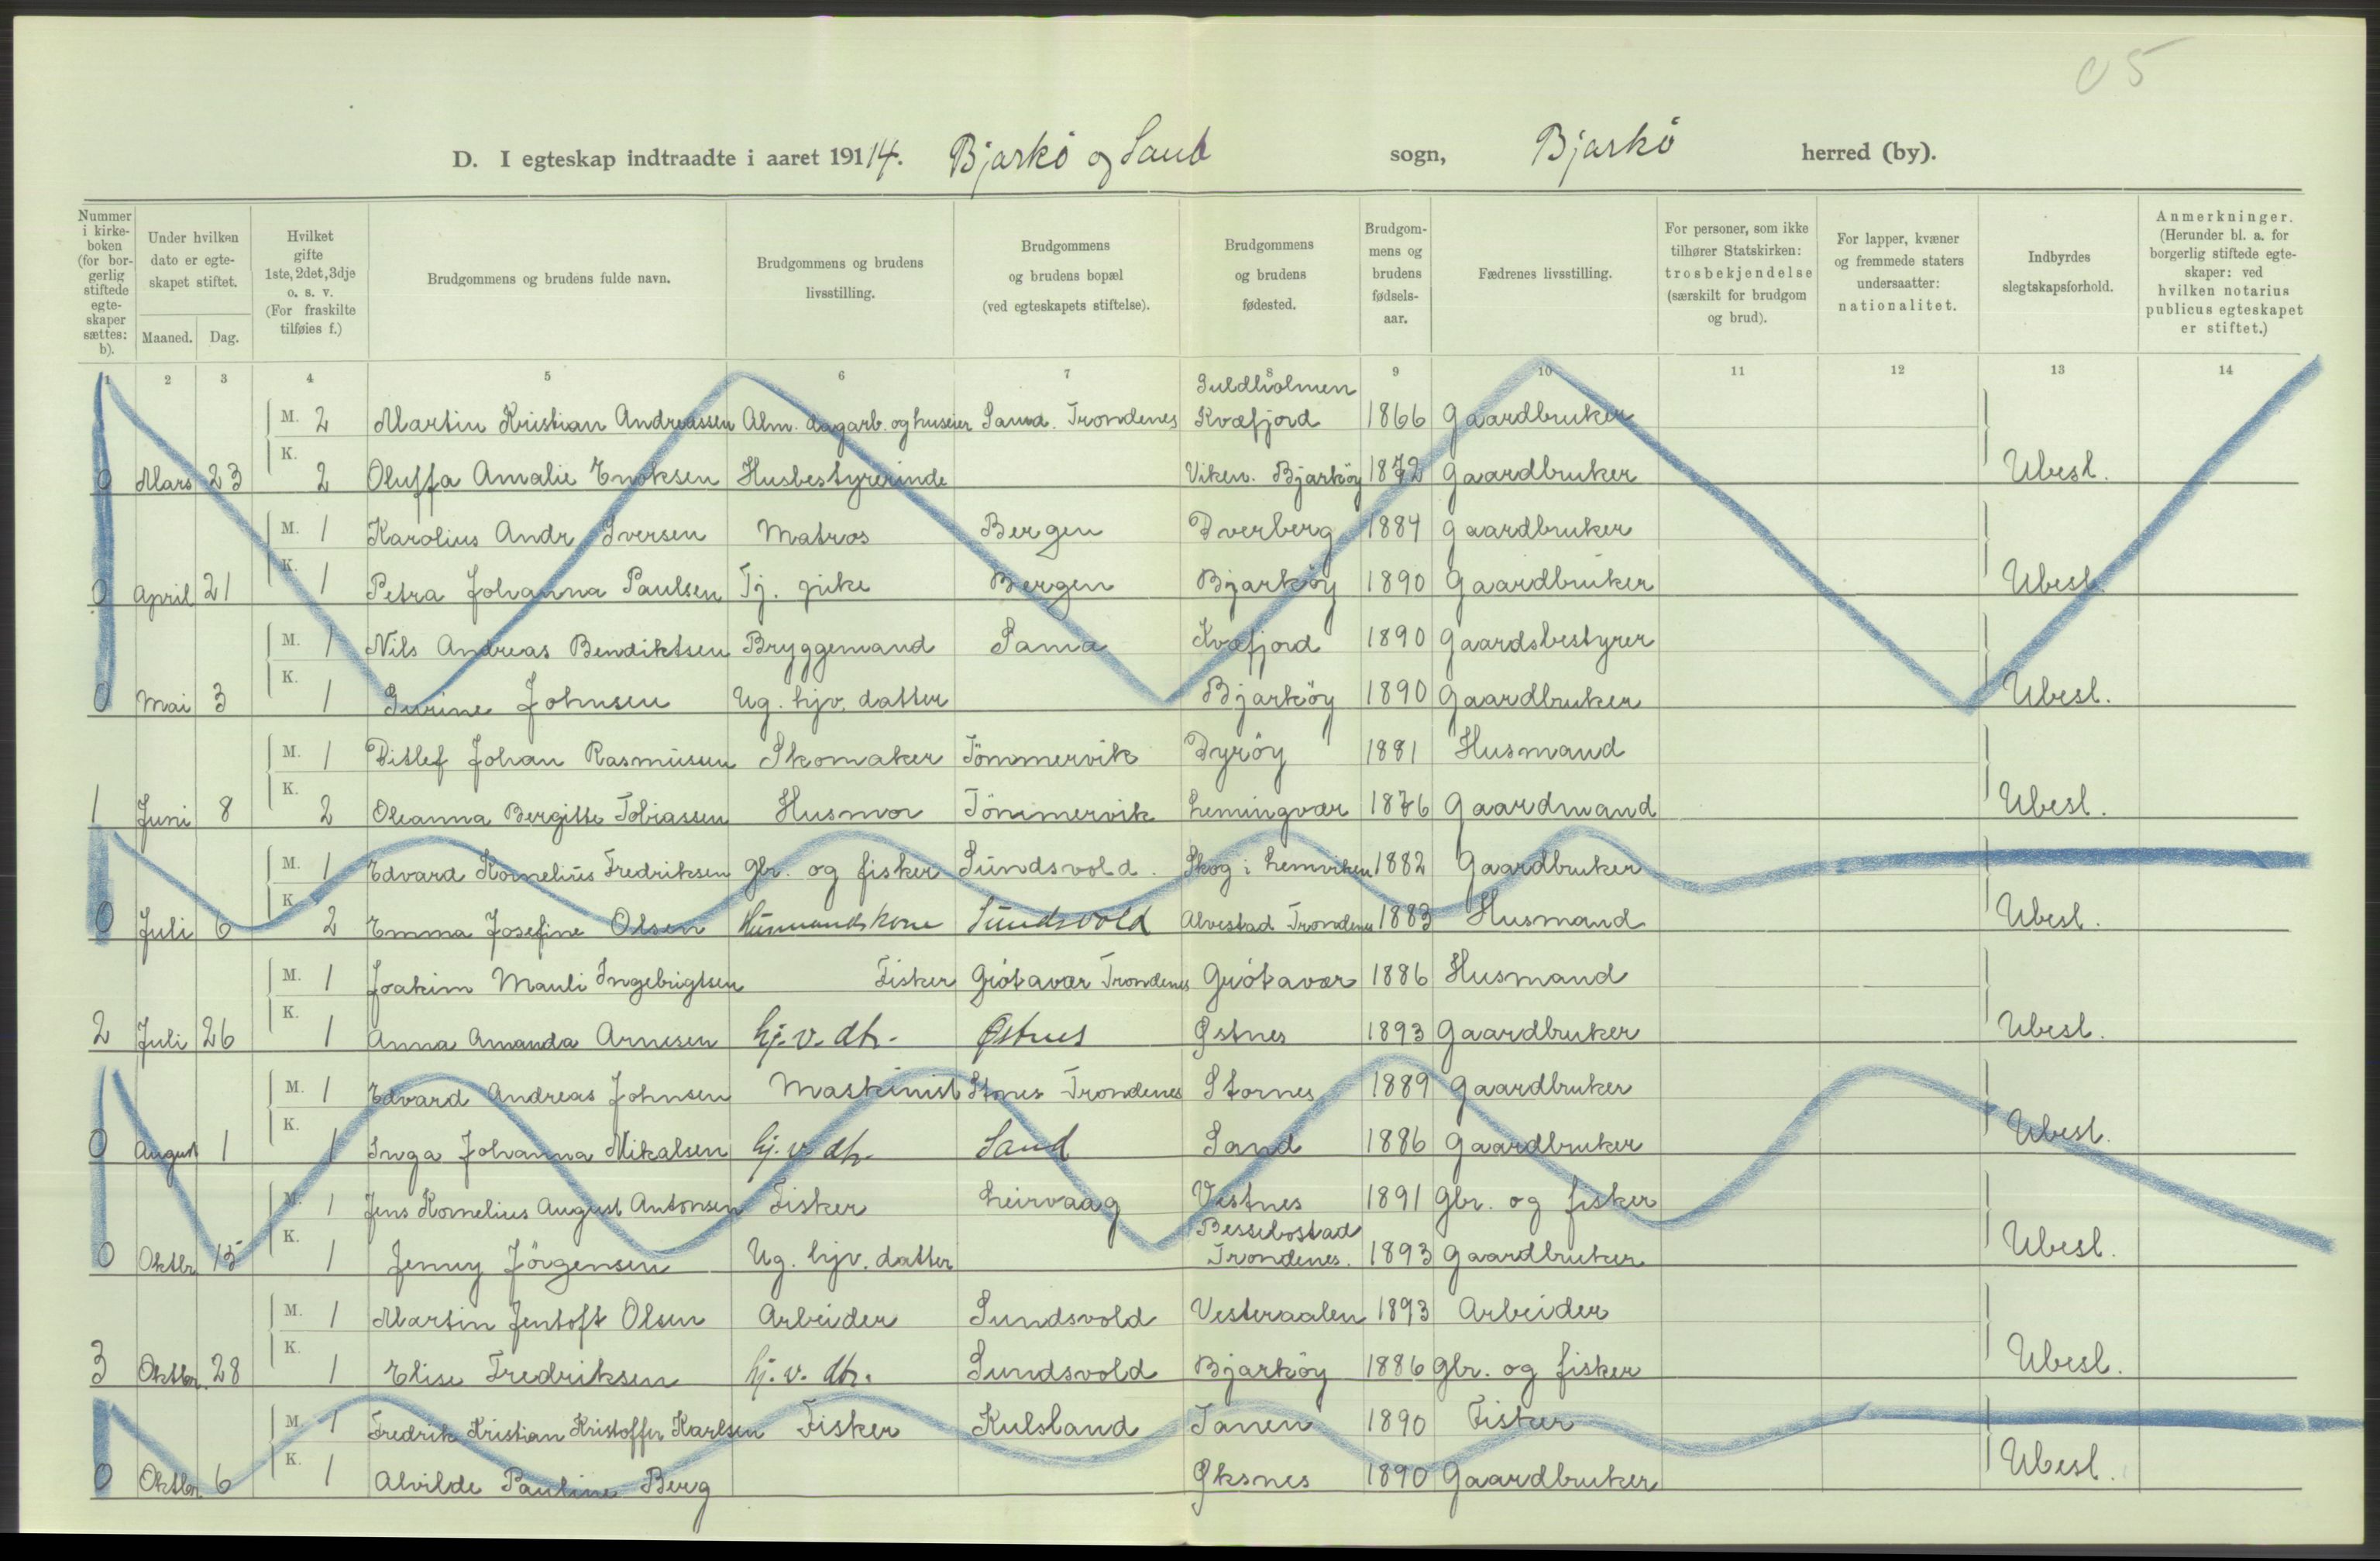 C 5
D. I egteskap indtraadte i aaret 19114. Bjarkö og Sand sogn, Bjarkö herred (by).
Nummer i kirke-boken (for bor-gerlig stiftede egte-skaper sættes: b). Under hvilken dato er egte-skapet stiftet. Maaned. Dag. Hvilket gifte 1ste, 2det, 3dje o. s. v. (For fraskilte tilføies f.) Brudgommens og brudens fulde navn. Brudgommens og brudens livsstilling. Brudgommens og brudens bopæl (ved egteskapets stiftelse). Brudgommens og brudens fødested. Brudgom-mens og brudens fødsels-aar. Fædrenes livsstilling. For personer, som ikke tilhører Statskirken: trosbekjendelse (særskilt for brudgom og brud). For lapper, kvæner og fremmede staters undersaatter: nationalitet. Indbyrdes slegtskapsforhold. Anmerkninger. (Herunder bl. a. for borgerlig stiftede egte-skaper: ved hvilken notarius publicus egteskapet er stiftet.)
1 2 3 4 5 6 7 8 9 10 11 12 13 14
M. 2 Martin Kristian Andreassen Alm. dagarb. og huseier Sand. Trondenes Guldholmen Kvæfjord 1866 Gaardbruker
0 Mars 23 K. 2 Oluffa Amalie Enoksen Husbestyrerinde Viken. Bjarköy 1872 Gaardbruker Ubesl.
M. 1 Karolius Andr Iversen Matros Bergen Dverberg 1884 Gaardbruker
0 April 21 K. 1 Petra Johanna Paulsen Tj. pike Bergen Bjarköy 1890 Gaardbruker Ubesl.
M. 1 Nils Andreas Bendiktsen Bryggemand Sama Kvæfjord 1890 Gaardsbestyrer
0 Mai 3 K. 1 Gurine Johnsen Ug. hjv. datter Bjarköy 1890 Gaardbruker Ubesl.
M. 1 Ditlef Johan Rasmusen Skomaker Tömmervik Dyröy 1881 Husmand
1 Juni 8 K. 2 Oleanna Bergitte Tobiassen Husmor Tömmervik Lemingvær 1876 Gaardmand Ubesl.
M. 1 Edvard Kornelius Fredriksen Gbr. og fisker Sundsvold. Skog i Lemviken 1882 Gaardbruker
0 Juli 6 K. 2 Emma Josefine Olsen Husmandskone Sundsvold Alvestad Trondenes 1883 Husmand Ubesl.
M. 1 Joakim Mauli Ingebrigtsen Fisker Griötavær Trondenes Griötavær 1886 Husmand
2 Juli 26 K. 1 Anna Amanda Arnesen hj. v. dtr. Østnes Østnes 1893 Gaardbruker Ubesl.
M. 1 Edvard Andreas Johnsen Maskinist Stnes Trondenes Stornes 1889 Gaardbruker
0 August 1 K. 1 Inga Johanna Mikalsen hj. v. dtr. Sand Sand 1886 Gaardbruker Ubesl.
M. 1 Jens Kornelius August Antonsen Fisker Leirvaag Vestnes 1891 Gbr. og fisker
0 Oktbr 15 K. 1 Jenny Jörgensen Ug. hjv. datter Bessebostad Trondenes. 1893 Gaardbruker Ubesl.
M. 1 Martin Jentoft Olsen Arbeider Sundsvold Vesteraalen 1893 Arbeider
3 Oktbr. 28 K. 1 Elise Fredriksen hj. v. dtr. Sundsvold Bjarköy 1886 Gbr. og fisker Ubesl.
M. 1 Fredrik Kristian Kristoffer Karlsen Fisker Kulsland Tanen 1890 Fisker
0 Oktbr 6 K. 1 Alvilde Pauline Berg Øksnes 1890 Gaardbruker Ubesl.